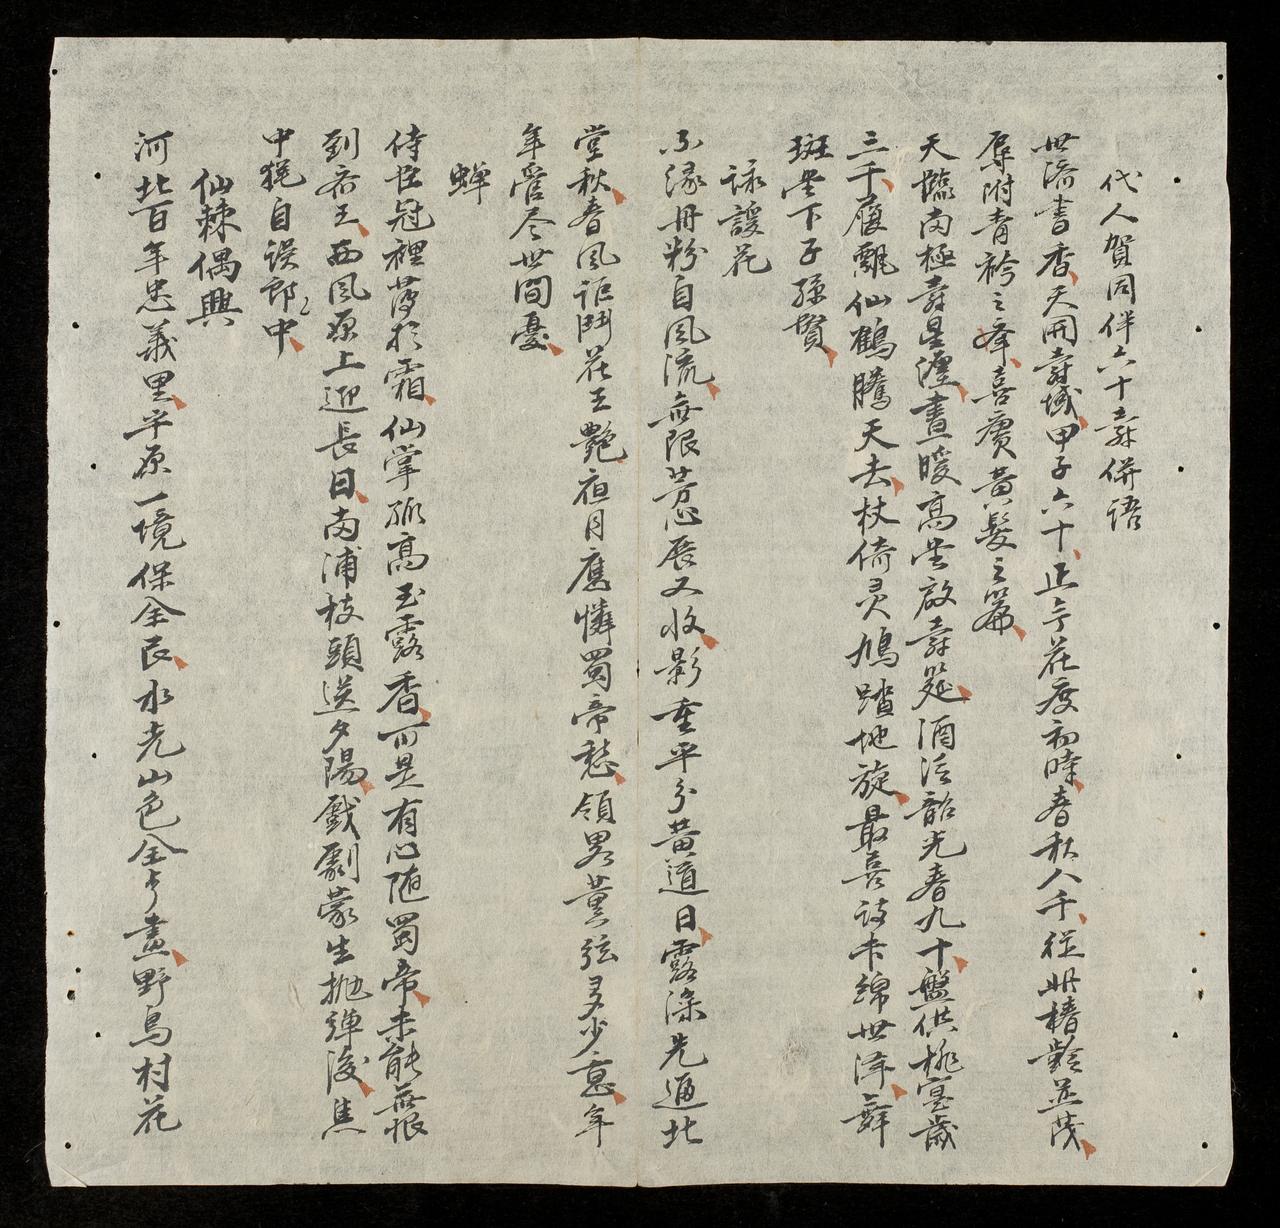 代人賀同伴六十壽併語
世濟書香天開壽域甲子六十正当花度初時春秋八千從此椿齡並茂
辱附青衿之峰喜賡黃髮之篇
天臨南極壽星躔晝暖高堂啟壽筵酒泛韶光春九十盤供桃實歲
三千履飄仙鶴騰天去杖倚灵鳩踏地旋最喜詩書綿世澤舞
斑堂下子孫賢
詠諼花
不深丹粉自風流無限芳心展又收影重平分黃道日露深先通北
堂秋春風詎鬥花王艷夜月應憐蜀帝愁領畧薰弦多少意年
年管尽世間憂
蟬
侍臣冠裡薄於霜仙掌孤高玉露香可是有心随蜀帝未能無恨
到齐王西風原上迎長日南浦枝頭送夕陽戲劇蒙生拋彈後焦
中猶自误郎〻中
仙棘偶興
河北百年忠義里平原一境保全民水光山色全是畫野鳥村花